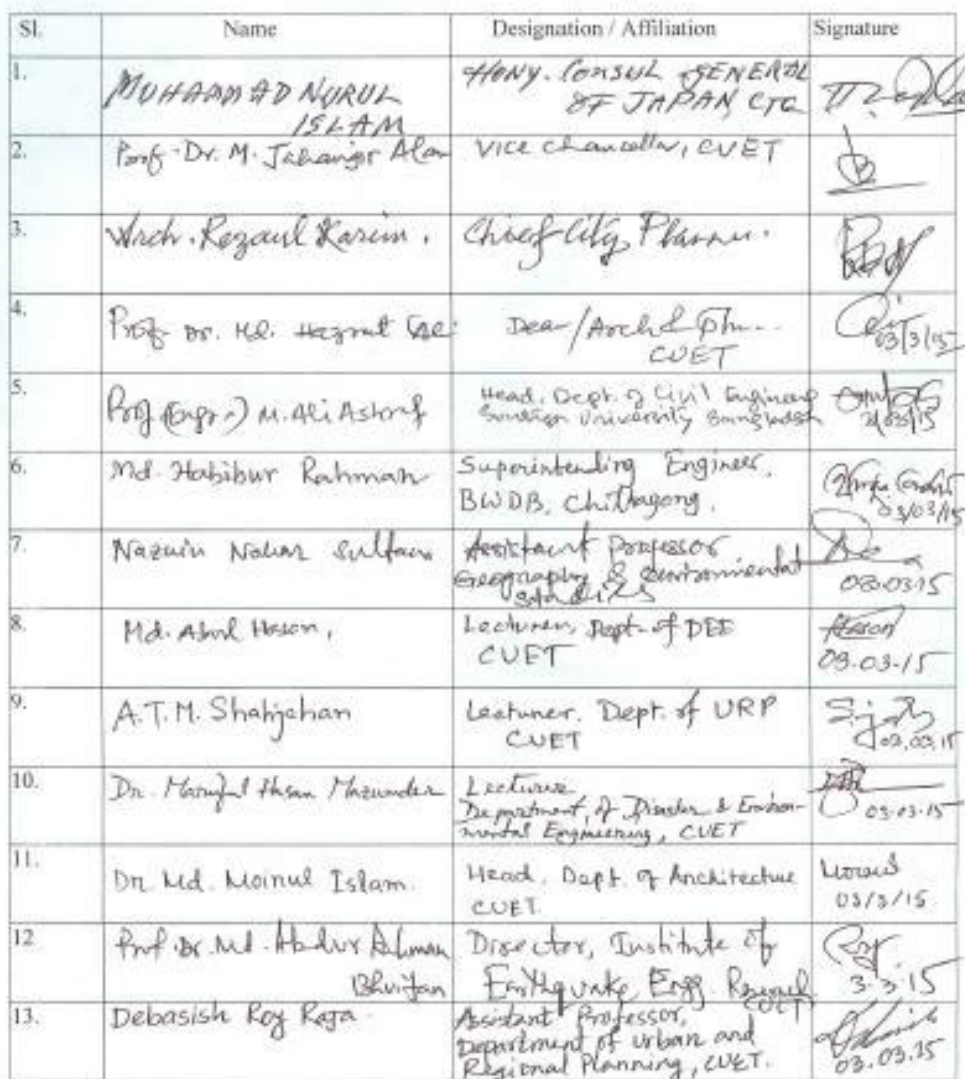 Sl. Name Designation / Affiliation Signature
1. MUHAMMAD NURUL HONY. CONSUL GENERAL
ISLAM OF JAPAN, CTG
2. Prof. Dr. M. Jahangir Alam Vice Chancellor, CUET
3. Arch. Rezaul Karim. Chief City Planner.
4. Prof. Dr. Md. Hazrat Ali Dean/Arch & Pln.
CUET 03/3/15
5. Prof. (Engr.) M. Ali Ashraf Head, Dept. of Civil Engineering
Southern University Bangladesh
6. Md. Habibur Rahman Superintending Engineer,
BWDB, Chittagong. 03/03/15
7. Naznin Nahar Sultana Assistant Professor
Geography & Environmental
Studies 03.03.15
8. Md. Abul Hasan, Lecturer, Dept. of DEE Hasan
CUET 03-03-15
9. A.T.M. Shahjahan Lecturer, Dept. of URP
CUET 03.03.15
10. Dr. Maruful Hasan Mazumder Lecturer
Department of Disaster & Environ-
mental Engineering, CUET 03-03-15
11. Dr. Md. Moinul Islam. Head, Dept. of Architecture
CUET. 03/3/15
12 Prof. Dr. Md. Abdur Rahman Director, Institute of
Bhuiyan Earthquake Engg. Research 3.3.15
CUET
13. Debasish Roy Raja Assistant Professor,
Department of Urban and
Regional Planning, CUET. 03.03.15